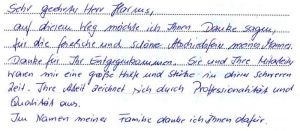 Sehr geehrter Herr Harms,
auf diesem Weg möchte ich Ihnen Danke sagen,
für die feierliche und schöne meines Mannes.
Danke für Ihr Entgegenkommen. Sie und Ihre Mitarbeiter
waren mir eine große Hilfe und Stütze in dieser schweren
Zeit. Ihre Arbeit zeichnet sich durch Professionalität und
Qualität aus.
Im Namen meiner Familie danke ich Ihnen dafür.